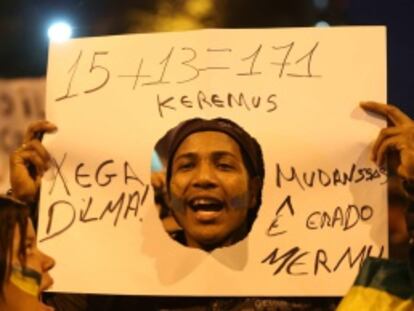 15+13=171
KEREMUS
XEGA
DILMA!
MUDANSSAS
Ê ERADO
MERMU